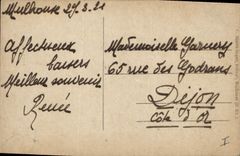 Mulhouse 29.3.21
Affectueux
baisers
Meilleur souvenir
Renée
Mademoiselle Garnery
65 rue des Godrans
Dijon
Côte d'Or
I